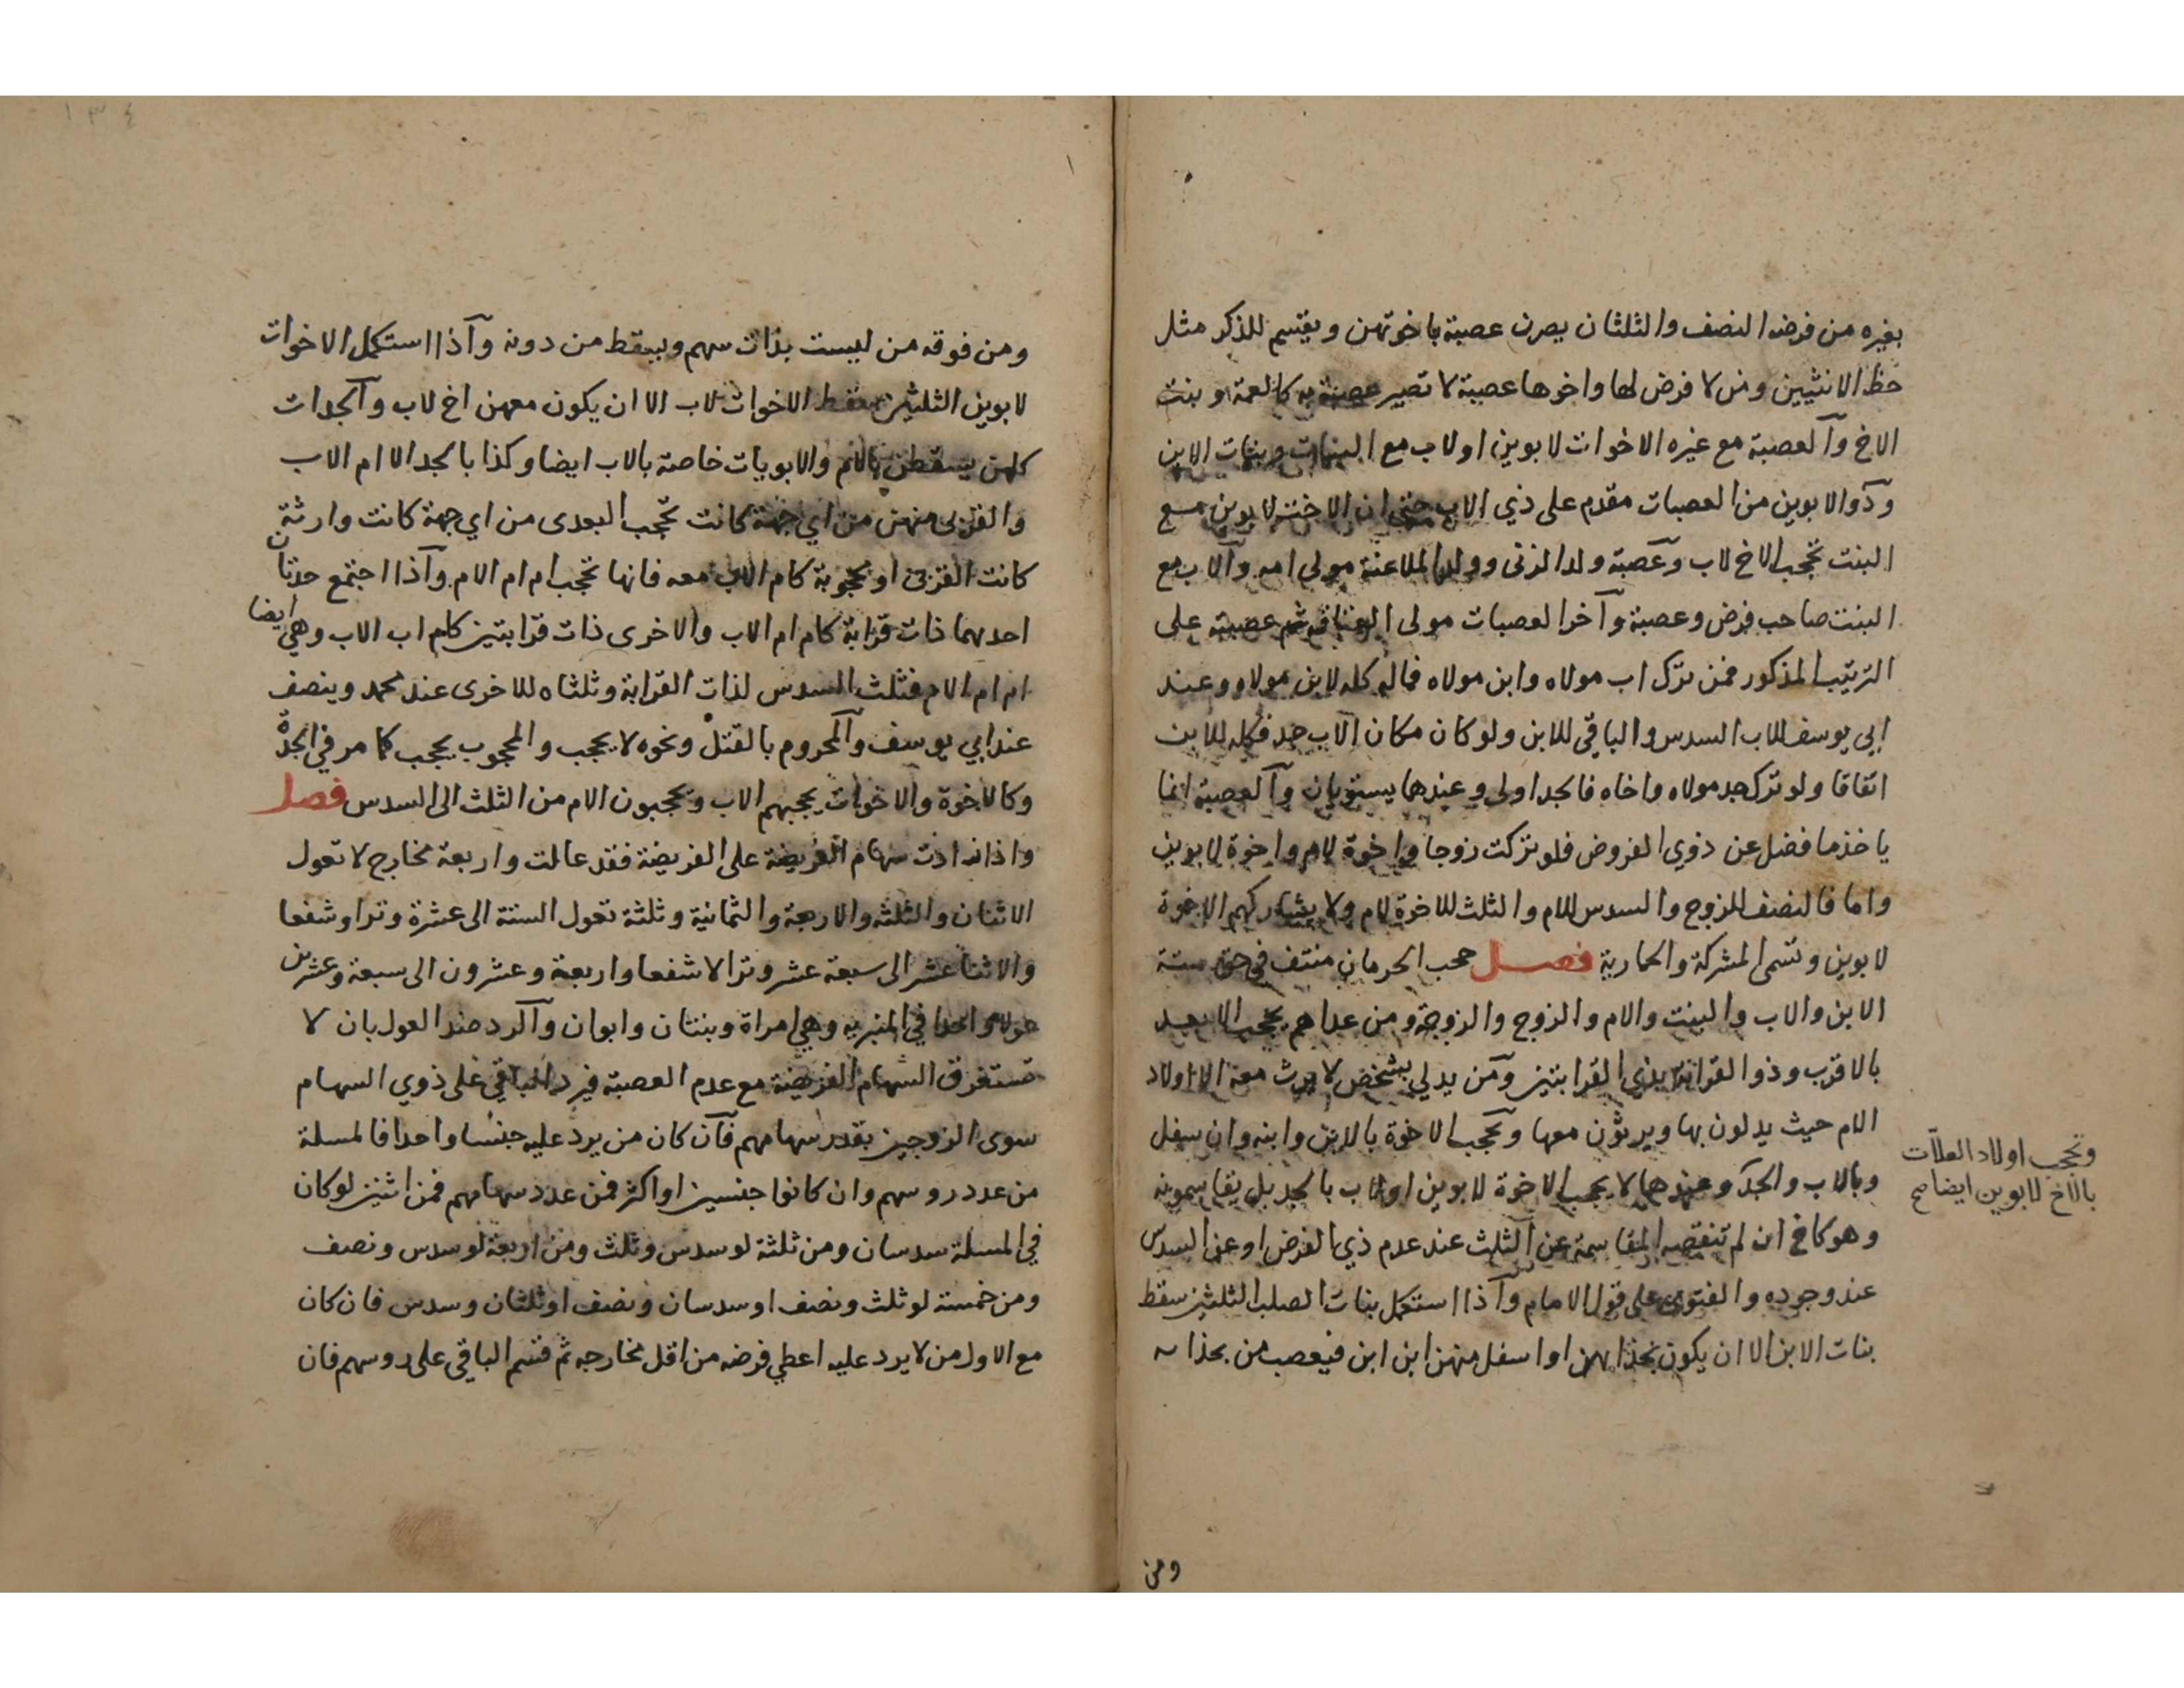 بغيره من فرضه النصف والثلثان يصرن عصبة باخوتهن ويقتسم للذكر مثل
حظ الانثيين ومن لا فرض لها واخوها عصبة لا تصير عصبة به كالعمة وبنت
الاخ والعصبة مع غيره الاخوات لابوين اولاب مع البنات وبنات الابن
وذوالابوين من العصبات مقدم على ذي الاب حتى ان الاخت لابوين مع
البنت تحجب الاخ لاب وعصبة ولد الزنى وولد الملاعنة مولى امه والاب مع
البنت صاحب فرض وعصبة وآخر العصبات مولى العتاقة ثم عصبته على
الترتيب المذكور فمن ترك اب مولاه وابن مولاه فماله كله لابن مولاه وعند
ابي يوسف للاب السدس والباقي للابن ولو كان مكان الاب جد فكله للابن
اتفاقا ولو ترك جد مولاه واخاه فالجد اولى وعندهما يستويان والعصبة انما
ياخذ ما فضل عن ذوي الفروض فلو تركت زوجا واخوة لام واخوة لابوين
واما فالنصف للزوج والسدس للام والثلث للاخوة لام ولا يشاركهم الاخوة
لابوين وتسمى المشركة والحمارية فصل حجب الحرمان منتف في حق ستة
الابن والاب والبنت والام والزوج والزوجة ومن عداهم يحجب الابعد
بالاقرب وذو القرابة بذي القرابتين ومن يدلي بشخص لا يرث معه الا اولاد
الام حيث يدلون بها ويرثون معها وتحجب الاخوة بالابن وابنه وان سفل
وبالاب والجد وعندهما لا يحجب الاخوة لابوين اولاب بالجد بل يقاسمونه
وهو كاخ ان لم تنقصه المقاسمة عن الثلث عند عدم ذي الفرض اوعن السدس
عند وجوده والفتوى على قول الامام وآذا استكمل بنات الصلب الثلثين سقط
بنات الابن الا ان يكون بحذائهن او اسفل منهن ابن ابن فيعصب من بحذائه
وتحجب اولاد العلات
بالاخ لابوين ايضا صح
ومن
١٣٤
ومن فوقه من ليست بذات سهم ويسقط من دونه وآذا استكمل الاخوات
لابوين الثلثين سقط الاخوات لاب الا ان يكون معهن اخ لاب والجدات
كلهن يسقطن بالام والابويات خاصة بالاب ايضا وكذا بالجد الا ام الاب
والقربى منهن من اي جهة كانت تحجب البعدى من اي جهة كانت وارثة
كانت القربى او محجوبة كام الاب معه فانها تحجب ام ام الام وآذا اجتمع جدتان
احدهما ذات قرابة كام ام الاب والاخرى ذات قرابتين كام اب الاب وهي ايضا
ام ام الام فثلث السدس لذات القرابة وثلثاه للاخرى عند محمد وينصف
عند ابي يوسف والمحروم بالقتل ونحوه لا يحجب والمحجوب يحجب كما مر في الجدة
وكالاخوة والاخوات يحجبهم الاب ويحجبون الام من الثلث الى السدس فصل
واذا زادت سهام الفريضة على الفريضة فقد عالت واربعة مخارج لا تعول
الاثنان والثلثة والاربعة والثمانية وثلثة تعول الستة الى عشرة وترا وشفعا
والاثنا عشر الى سبعة عشر وترا لا شفعا واربعة وعشرون الى سبعة وعشرين
عولا واحدا في المنبرية وهي امراة وبنتان وابوان والرد ضد العول بان لا
تستغرق السهام الفريضة مع عدم العصبة فيرد الباقي على ذوي السهام
سوى الزوجين بقدر سهامهم فان كان من يرد عليه جنسا واحدا فالمسلة
من عدد روسهم وان كانوا جنسين او اكثر فمن عدد سهامهم فمن اثنين لو كان
في المسلة سدسان ومن ثلثة لو سدس وثلث ومن اربعة لو سدس ونصف
ومن خمسة لو ثلث ونصف او سدسان ونصف او ثلثان وسدس فان كان
مع الاول من لا يرد عليه اعطي فرضه من اقل مخارجه ثم قسم الباقي على روسهم فان